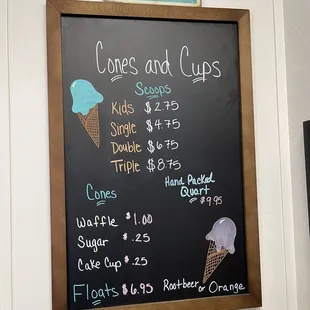 Cones and Cups
Scoops
Kids $2.75
Single $4.75
Double $6.75
Triple $8.75
Hand Packed
Quart
$9.95
Cones
Waffle $1.00
Sugar $.25
Cake Cup $.25
Floats $6.95 Rootbeer or Orange